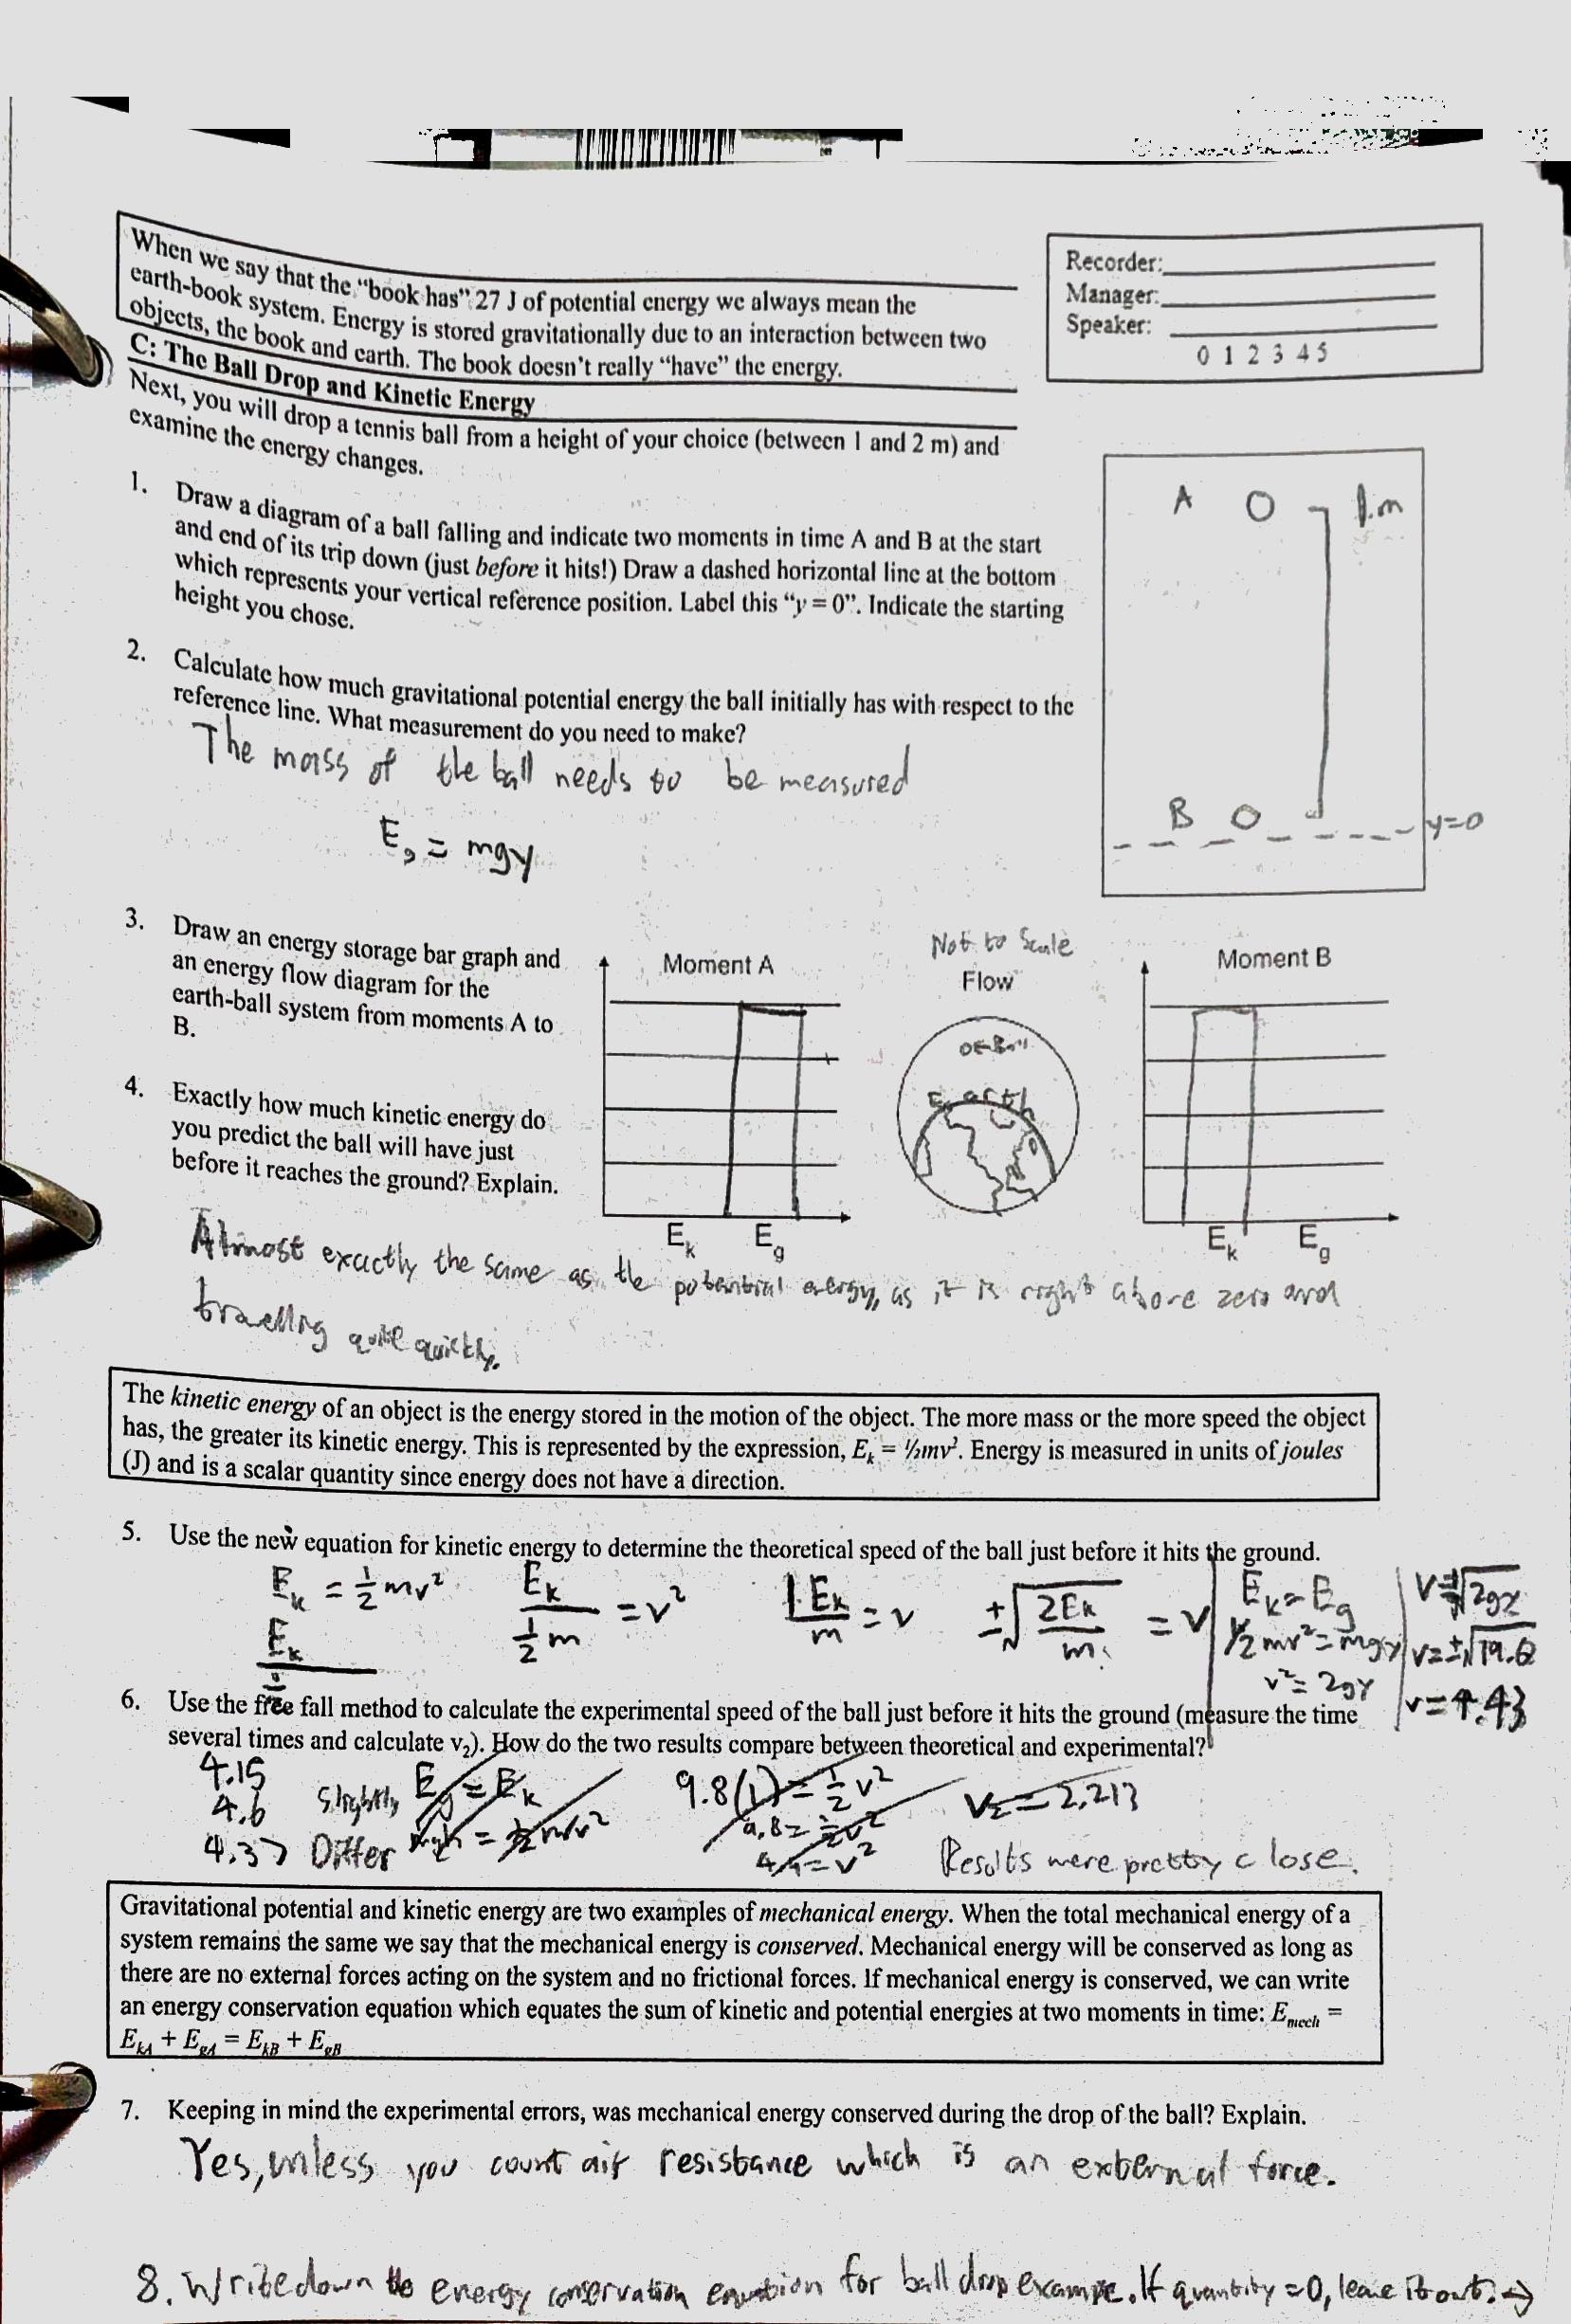 When we say that the "book has" 27 J of potential energy we always mean the
earth-book system. Energy is stored gravitationally due to an interaction between two
objects, the book and earth. The book doesn't really "have" the energy.
Recorder:
Manager:
Speaker:
0 1 2 3 4 5
C: The Ball Drop and Kinetic Energy
Next, you will drop a tennis ball from a height of your choice (between 1 and 2 m) and
examine the energy changes.
1. Draw a diagram of a ball falling and indicate two moments in time A and B at the start
and end of its trip down (just before it hits!) Draw a dashed horizontal line at the bottom
which represents your vertical reference position. Label this "y = 0". Indicate the starting
height you chose.
A 1.m
B y=0
2. Calculate how much gravitational potential energy the ball initially has with respect to the
reference line. What measurement do you need to make?
The mass of the ball needs to be measured
Eg = mgy
3. Draw an energy storage bar graph and
an energy flow diagram for the
earth-ball system from moments A to
B.
Moment A
Not to Scale
Flow
Moment B
Ball
Earth
Ek Eg
Ek Eg
4. Exactly how much kinetic energy do
you predict the ball will have just
before it reaches the ground? Explain.
Almost exactly the same as the potential energy, as it is right above zero and
travelling quite quickly.
The kinetic energy of an object is the energy stored in the motion of the object. The more mass or the more speed the object
has, the greater its kinetic energy. This is represented by the expression, Ek = ½mv². Energy is measured in units of joules
(J) and is a scalar quantity since energy does not have a direction.
5. Use the new equation for kinetic energy to determine the theoretical speed of the ball just before it hits the ground.
Ek = 1/2 mv² Ek/(1/2 m) = v² Ek/m = v ±√(2Ek/m) = v
Ek
Ek = Eg
1/2 mv² = mgy
v² = 2gy
v=±√2gy
v=±√19.6
v=4.43
6. Use the free fall method to calculate the experimental speed of the ball just before it hits the ground (measure the time
several times and calculate v2). How do the two results compare between theoretical and experimental?
4.15
4.6
4.37
Slightly
Differ
Eg = Ek
mgh = 1/2 mv²
9.8(1) = 1/2 v²
9.8 = 1/2 v²
4.9 = v²
v2 = 2.213
Results were pretty close.
Gravitational potential and kinetic energy are two examples of mechanical energy. When the total mechanical energy of a
system remains the same we say that the mechanical energy is conserved. Mechanical energy will be conserved as long as
there are no external forces acting on the system and no frictional forces. If mechanical energy is conserved, we can write
an energy conservation equation which equates the sum of kinetic and potential energies at two moments in time: Emech =
EkA + EgA = EkB + EgB
7. Keeping in mind the experimental errors, was mechanical energy conserved during the drop of the ball? Explain.
Yes, unless you count air resistance which is an external force.
8. Write down the energy conservation equation for ball drop example. If quantity = 0, leave it out. →